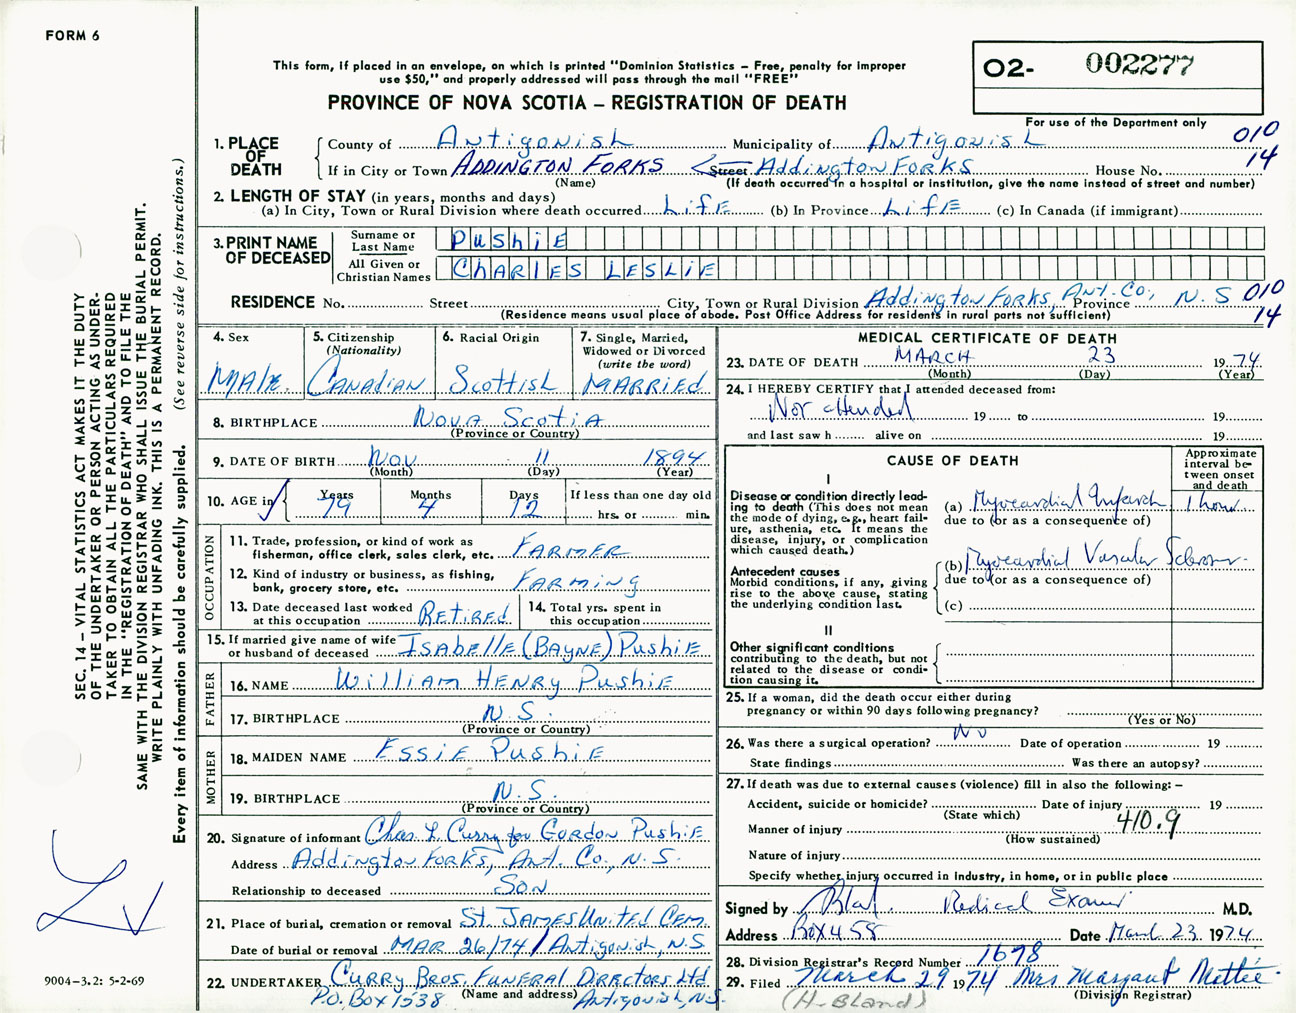 FORM 6
This form, if placed in an envelope, on which is printed "Dominion Statistics – Free, penalty for improper
use $50," and properly addressed will pass through the mail "FREE"
PROVINCE OF NOVA SCOTIA – REGISTRATION OF DEATH
O2- 002277
For use of the Department only
010
14
1. PLACE OF DEATH
County of Antigonish Municipality of Antigonish
If in City or Town ADDINGTON FORKS Street Addington FORKS House No.
(Name) (If death occurred in a hospital or institution, give the name instead of street and number)
2. LENGTH OF STAY (in years, months and days)
(a) In City, Town or Rural Division where death occurred LifE (b) In Province LifE (c) In Canada (if immigrant)
3. PRINT NAME OF DECEASED
Surname or Last Name PushiE
All Given or Christian Names CHARLES LESLiE
RESIDENCE No. Street City, Town or Rural Division Addington Forks, Ant. Co., Province N. S 010
14
(Residence means usual place of abode. Post Office Address for residents in rural parts not sufficient)
4. Sex
MAlE.
5. Citizenship
(Nationality)
CANADIAN
6. Racial Origin
Scottish
7. Single, Married,
Widowed or Divorced
(write the word)
MARRIED
8. BIRTHPLACE NOVA ScotiA
(Province or Country)
9. DATE OF BIRTH Nov 11 1894
(Month) (Day) (Year)
10. AGE in Years Months Days If less than one day old
79 4 12 hrs. or min.
OCCUPATION
11. Trade, profession, or kind of work as
fisherman, office clerk, sales clerk, etc. FARMER
12. Kind of industry or business, as fishing,
bank, grocery store, etc. FARMING
13. Date deceased last worked
at this occupation REtiRED
14. Total yrs. spent in
this occupation
15. If married give name of wife
or husband of deceased ISAbEllE (BAYNE) PushiE
FATHER
16. NAME William HENRY PushiE
17. BIRTHPLACE N. S.
(Province or Country)
MOTHER
18. MAIDEN NAME ESSIE PushiE
19. BIRTHPLACE N. S.
(Province or Country)
20. Signature of informant Chas. L. Curry for GORDON PushiE
Address Addington Forks, Ant. Co., N. S.
Relationship to deceased Son
21. Place of burial, cremation or removal St. JAMES UNITED CEM.
Date of burial or removal MAR 26/74 / Antigonish, N.S
22. UNDERTAKER CURRY BROS. FUNERAL DIRECTORS Ltd
(Name and address)
P.O. Box 1538 Antigonish, N.S.
MEDICAL CERTIFICATE OF DEATH
23. DATE OF DEATH MARCH 23 1974
(Month) (Day) (Year)
24. I HEREBY CERTIFY that I attended deceased from:
Not attended 19 to 19
and last saw h alive on 19
CAUSE OF DEATH
Approximate
interval be-
tween onset
and death
I
Disease or condition directly lead-
ing to death (This does not mean
the mode of dying, e.g., heart fail-
ure, asthenia, etc. It means the
disease, injury, or complication
which caused death.)
(a) Myocardial Infarct 1 hour
due to (or as a consequence of)
Antecedent causes
Morbid conditions, if any, giving
rise to the above cause, stating
the underlying condition last.
(b) Myocardial Vascular Sclerosis
due to (or as a consequence of)
(c)
II
Other significant conditions
contributing to the death, but not
related to the disease or condi-
tion causing it.
25. If a woman, did the death occur either during
pregnancy or within 90 days following pregnancy?
(Yes or No)
26. Was there a surgical operation? No Date of operation 19
State findings Was there an autopsy?
27. If death was due to external causes (violence) fill in also the following:–
Accident, suicide or homicide? Date of injury 19
(State which)
Manner of injury 410.9
(How sustained)
Nature of injury
Specify whether injury occurred in industry, in home, or in public place
Signed by Medical M.D.
Address Box 455 Date March 23 1974
28. Division Registrar's Record Number 1678
29. Filed March 29 1974 Mrs Margaret
(Division Registrar)
(H. BLAND)
SEC. 14 – VITAL STATISTICS ACT MAKES IT THE DUTY
OF THE UNDERTAKER OR PERSON ACTING AS UNDER-
TAKER TO OBTAIN ALL THE PARTICULARS REQUIRED
IN THE "REGISTRATION OF DEATH" AND TO FILE THE
SAME WITH THE DIVISION REGISTRAR WHO SHALL ISSUE THE BURIAL PERMIT.
WRITE PLAINLY WITH UNFADING INK. THIS IS A PERMANENT RECORD.
Every item of information should be carefully supplied. (See reverse side for instructions.)
9004–3.2: 5-2-69